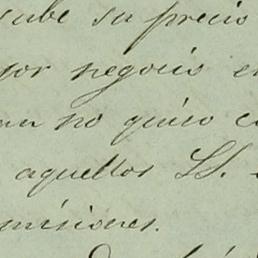 sube su precio
jor negocio e
no quiso c
aquellos SS.
misiones.